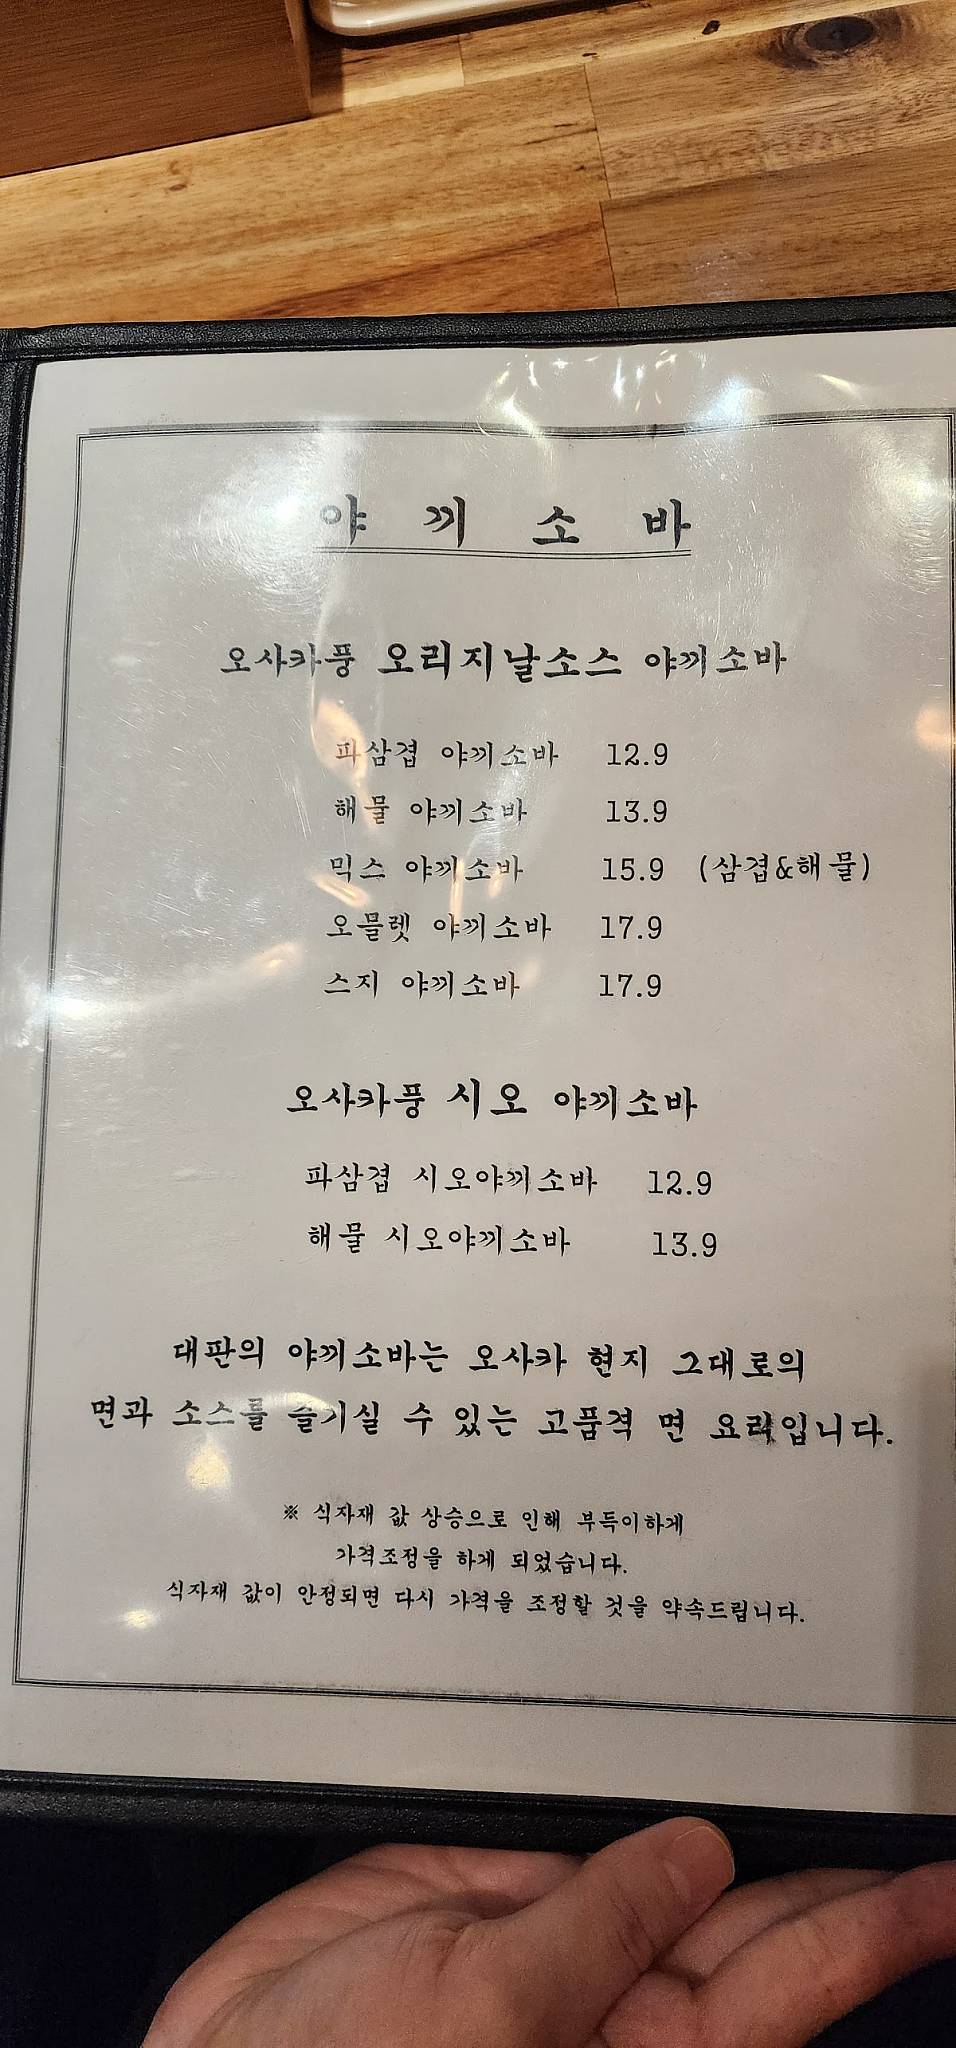 야 끼 소 바
오사카풍 오리지날소스 야끼소바
파삼겹 야끼소바 12.9
해물 야끼소바 13.9
믹스 야끼소바 15.9 (삼겹&해물)
오믈렛 야끼소바 17.9
스지 야끼소바 17.9
오사카풍 시오 야끼소바
파삼겹 시오야끼소바 12.9
해물 시오야끼소바 13.9
대판의 야끼소바는 오사카 현지 그대로의
면과 소스를 즐기실 수 있는 고품격 면 요리입니다.
※ 식자재 값 상승으로 인해 부득이하게
가격조정을 하게 되었습니다.
식자재 값이 안정되면 다시 가격을 조정할 것을 약속드립니다.